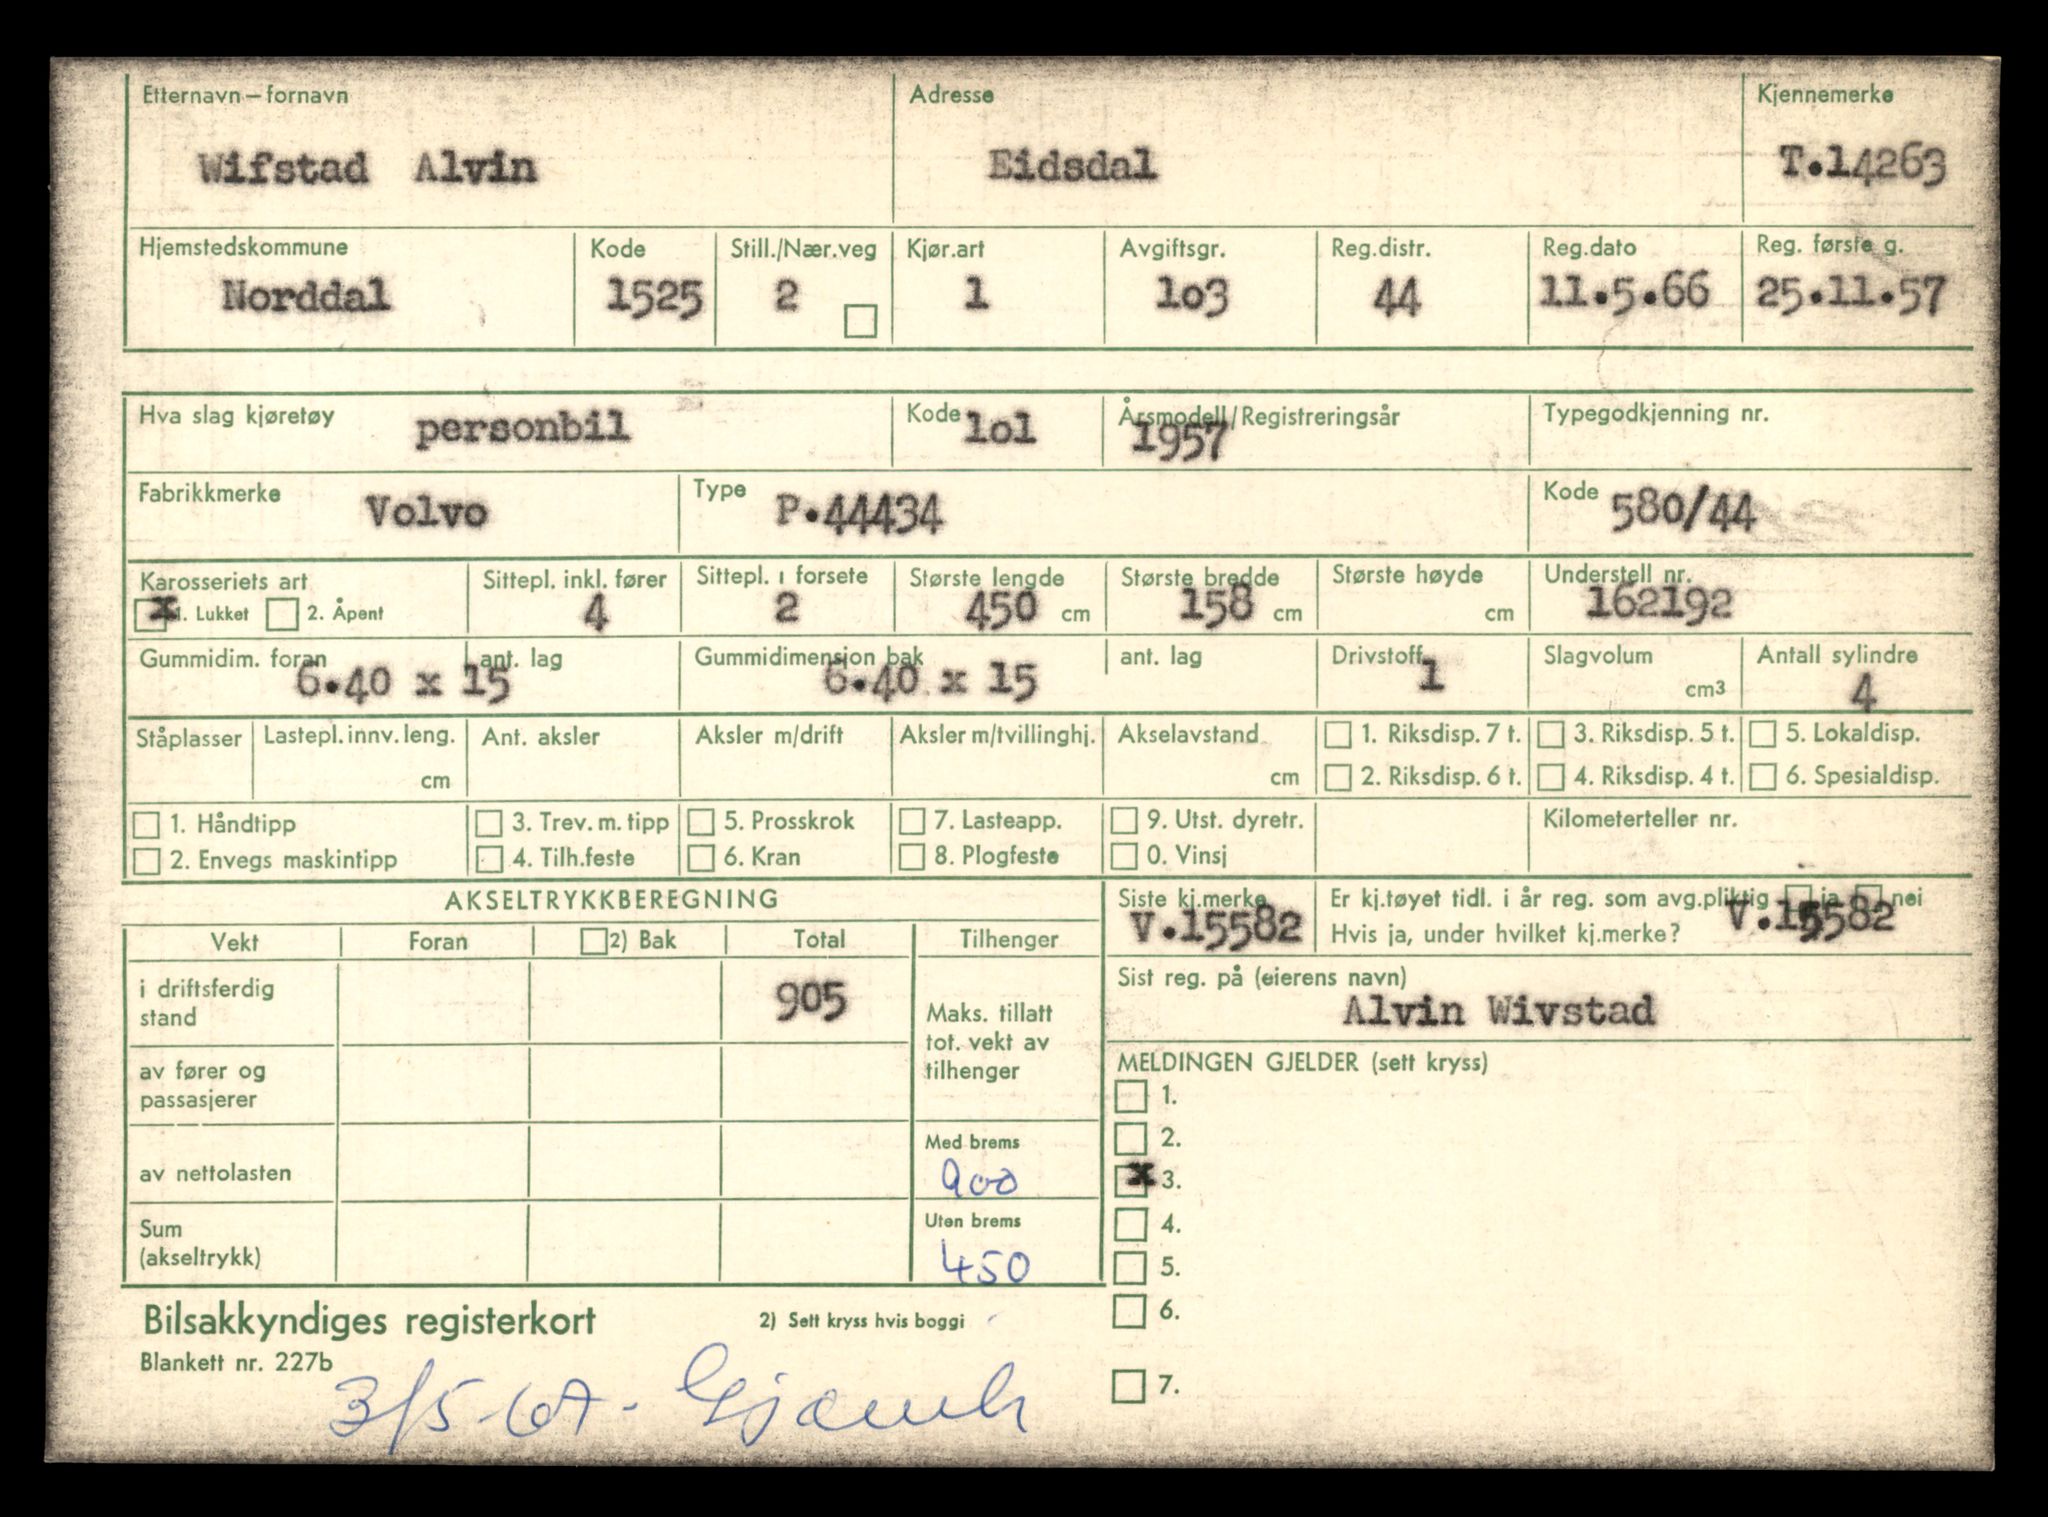 Etternavn—fornavn Adresse Kjennemerke
Wifstad Alvin Eidsdal T.14263
Hjemstedskommune Kode Still./Nær.veg Kjør.art Avgiftsgr. Reg.distr. Reg.dato Reg. første g.
Norddal 1525 2 1 1o3 44 11.5.66 25.11.57
Hva slag kjøretøy personbil Kode 1o1 Årsmodell/Registreringsår 1957 Typegodkjenning nr.
Fabrikkmerke Volvo Type P.44434 Kode 580/44
Karosseriets art Sittepl. inkl. fører Sittepl. i forsete Største lengde Største bredde Største høyde Understell nr.
x 1. Lukket 2. Åpent 4 2 450 cm 158 cm cm 162192
Gummidim. foran ant. lag Gummidimensjon bak ant. lag Drivstoff Slagvolum Antall sylindre
6.40 x 15 6.40 x 15 1 cm3 4
Ståplasser Lastepl. innv. leng. Ant. aksler Aksler m/drift Aksler m/tvillinghj. Akselavstand 1. Riksdisp. 7 t. 3. Riksdisp. 5 t. 5. Lokaldisp.
cm cm 2. Riksdisp. 6 t. 4. Riksdisp. 4 t. 6. Spesialdisp.
1. Håndtipp 3. Trev. m. tipp 5. Prosskrok 7. Lasteapp. 9. Utst. dyretr. Kilometerteller nr.
2. Envegs maskintipp 4. Tilh.feste 6. Kran 8. Plogfeste 0. Vinsj
AKSELTRYKKBEREGNING
Vekt Foran 2) Bak Total Tilhenger
i driftsferdig stand 905
Maks. tillatt tot. vekt av tilhenger
av fører og passasjerer
Med brems
av nettolasten 900
Uten brems
Sum (akseltrykk) 450
Siste kj.merke V.15582
Er kj.tøyet tidl. i år reg. som avg.pliktig ja nei
Hvis ja, under hvilket kj.merke? V.15582
Sist reg. på (eierens navn)
Alvin Wivstad
MELDINGEN GJELDER (sett kryss)
1.
2.
x 3.
4.
5.
6.
7.
Bilsakkyndiges registerkort 2) Sett kryss hvis boggi
Blankett nr. 227b
3/5-67-